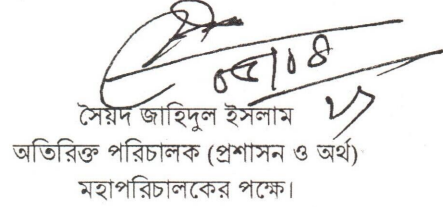 সৈয়দ জাহিদুল ইসলাম
অতিরিক্ত পরিচালক (প্রশাসন ও অর্থ)
মহাপরিচালকের পক্ষে।